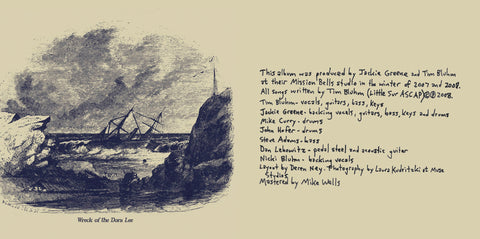 Wreck of the Dora Lee
This album was produced by Jackie Greene and Tim Bluhm
at their Mission Bells studio in the winter of 2007 and 2008.
All songs written by Tim Bluhm (Little Sur ASCAP)©℗ 2008.
Tim Bluhm- vocals, guitars, bass, keys
Jackie Greene- backing vocals, guitars, bass, keys and drums
Mike Curry- drums
John Hofer- drums
Steve Adams- bass
Dan Lebowitz- pedal steel and acoustic guitar
Nicki Bluhm- backing vocals
Layout by Deren Ney. Photography by Laura Kudritzki at Muse
Studios
Mastered by Mike Wells